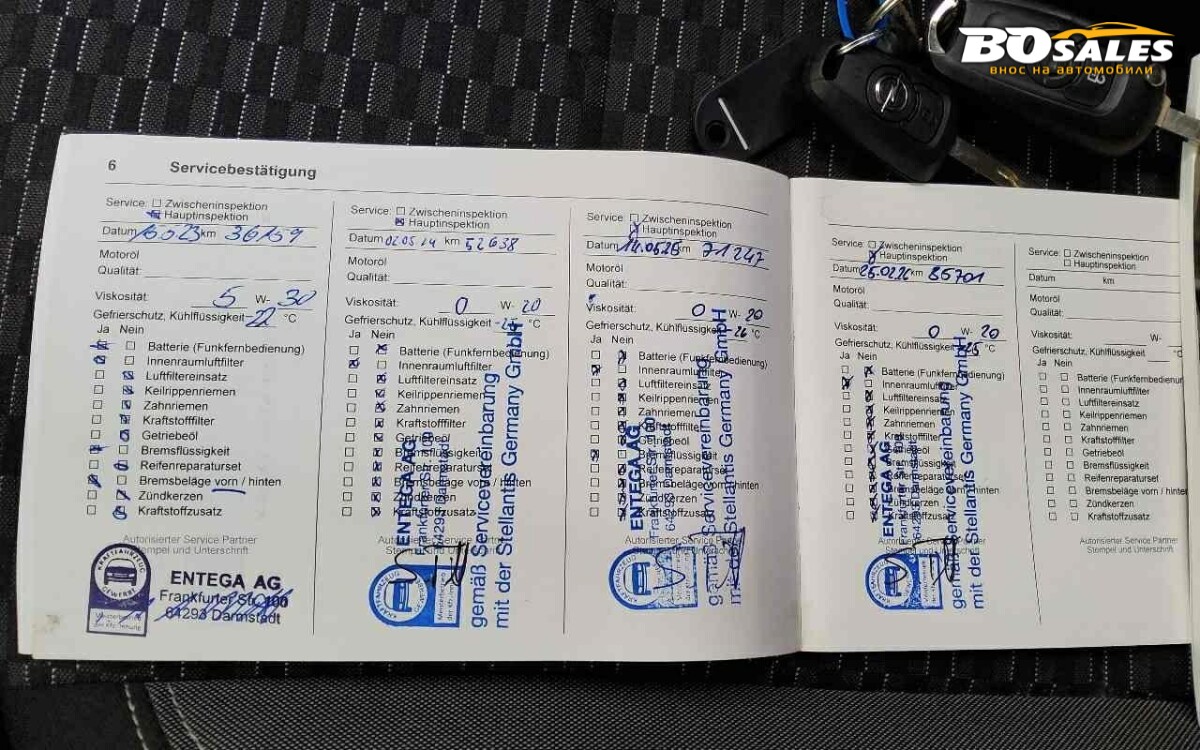 BOSALES
ВНОС НА АВТОМОБИЛИ
6 Servicebestätigung
Service: Zwischeninspektion
Hauptinspektion
Datum km 36159
Motoröl
Qualität:
Viskosität: 5 W- 30
Gefrierschutz, Kühlflüssigkeit -22 °C
Ja Nein
Batterie (Funkfernbedienung)
Innenraumluftfilter
Luftfiltereinsatz
Keilrippenriemen
Zahnriemen
Kraftstofffilter
Getriebeöl
Bremsflüssigkeit
Reifenreparaturset
Bremsbeläge vorn / hinten
Zündkerzen
Kraftstoffzusatz
Autorisierter Service Partner
Stempel und Unterschrift
KRAFTFAHRZEUG
GEWERBE
ENTEGA AG
Frankfurter Str. 100
64293 Darmstadt
Service: Zwischeninspektion
Hauptinspektion
Datum 02.05 km 52638
Motoröl
Qualität:
Viskosität: 0 W- 20
Gefrierschutz, Kühlflüssigkeit °C
Ja Nein
Batterie (Funkfernbedienung)
Innenraumluftfilter
Luftfiltereinsatz
Keilrippenriemen
Zahnriemen
Kraftstofffilter
Getriebeöl
Bremsflüssigkeit
Reifenreparaturset
Bremsbeläge vorn / hinten
Zündkerzen
Kraftstoffzusatz
Autorisierter Service Partner
Stempel und Unterschrift
ENTEGA AG
Frankfurter Str. 100
64293 Darmstadt
gemäß Servicevereinbarung
mit der Stellantis Germany GmbH
Service: Zwischeninspektion
Hauptinspektion
Datum km 71247
Motoröl
Qualität:
Viskosität: 0 W- 20
Gefrierschutz, Kühlflüssigkeit -26 °C
Ja Nein
Batterie (Funkfernbedienung)
Innenraumluftfilter
Luftfiltereinsatz
Keilrippenriemen
Zahnriemen
Kraftstofffilter
Getriebeöl
Bremsflüssigkeit
Reifenreparaturset
Bremsbeläge vorn / hinten
Zündkerzen
Kraftstoffzusatz
Autorisierter Service Partner
Stempel und Unterschrift
ENTEGA AG
Frankfurter Str. 100
64293 Darmstadt
gemäß Servicevereinbarung
mit der Stellantis Germany GmbH
Service: Zwischeninspektion
Hauptinspektion
Datum 25.02.26 km 85701
Motoröl
Qualität:
Viskosität: 0 W- 20
Gefrierschutz, Kühlflüssigkeit -25 °C
Ja Nein
Batterie (Funkfernbedienung)
Innenraumluftfilter
Luftfiltereinsatz
Keilrippenriemen
Zahnriemen
Kraftstofffilter
Getriebeöl
Bremsflüssigkeit
Reifenreparaturset
Bremsbeläge vorn / hinten
Zündkerzen
Kraftstoffzusatz
Autorisierter Service Partner
Stempel und Unterschrift
ENTEGA AG
Frankfurter Str. 100
64293 Darmstadt
gemäß Servicevereinbarung
mit der Stellantis Germany GmbH
Service: Zwischeninspektion
Hauptinspektion
Datum km
Motoröl
Qualität:
Viskosität: W-
Gefrierschutz, Kühlflüssigkeit °C
Ja Nein
Batterie
Innenraumluftfilter
Luftfiltereinsatz
Keilrippenriemen
Zahnriemen
Kraftstofffilter
Getriebeöl
Bremsflüssigkeit
Reifenreparaturset
Bremsbeläge vorn /
Zündkerzen
Kraftstoffzusatz
Autorisierter Service Partner
Stempel und Unterschrift